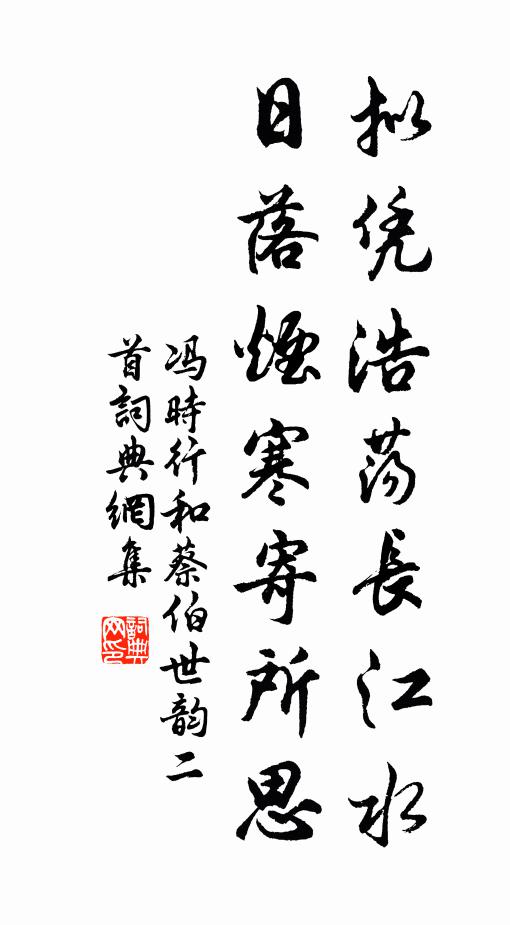 拟凭浩荡長江水
日落煙寒寄所思
冯時行和蔡伯世韵二
首詞典網集
詞典
网印